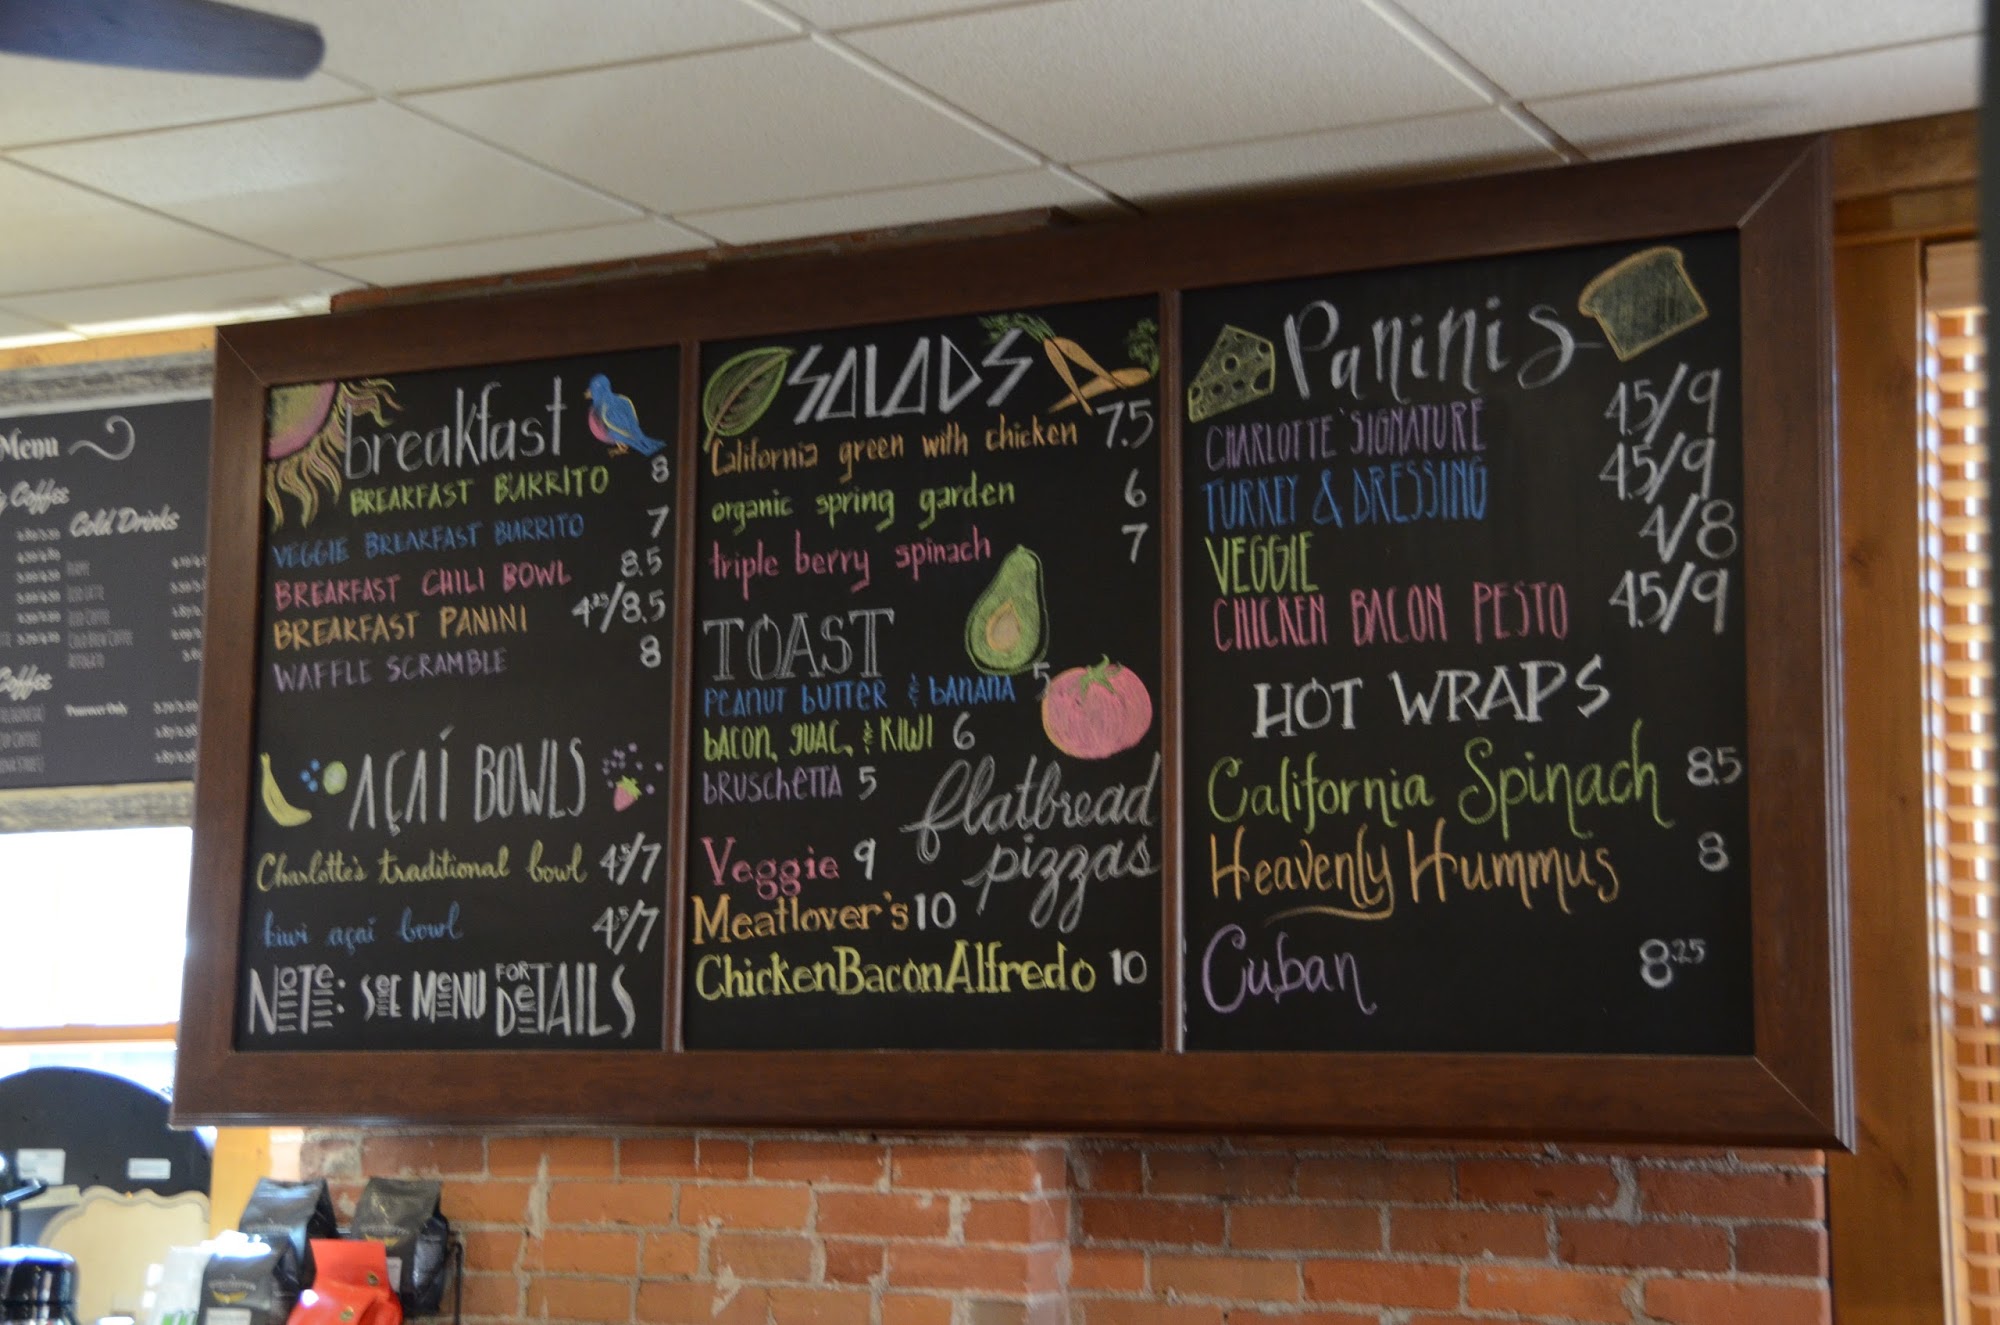 Menu
Coffee
Cold Drinks
Coffee
breakfast
BREAKFAST BURRITO 8
VEGGIE BREAKFAST BURRITO 7
BREAKFAST CHILI BOWL 8.5
BREAKFAST PANINI 4.25/8.5
WAFFLE SCRAMBLE 8
AÇAÍ BOWLS
Charlotte's traditional bowl 4.5/7
kiwi açaí bowl 4.5/7
NOTE: SEE MENU FOR DETAILS
SALADS
California green with chicken 7.5
organic spring garden 6
triple berry spinach 7
TOAST
PEANUT BUTTER & BANANA 5
BACON, GUAC, & KIWI 6
BRUSCHETTA 5
flatbread
pizzas
Veggie 9
Meatlover's 10
ChickenBaconAlfredo 10
Paninis
CHARLOTTE'SIGNATURE 4.5/9
TURKEY & DRESSING 4.5/9
VEGGIE 4/8
CHICKEN BACON PESTO 4.5/9
HOT WRAPS
California Spinach 8.5
Heavenly Hummus 8
Cuban 8.25